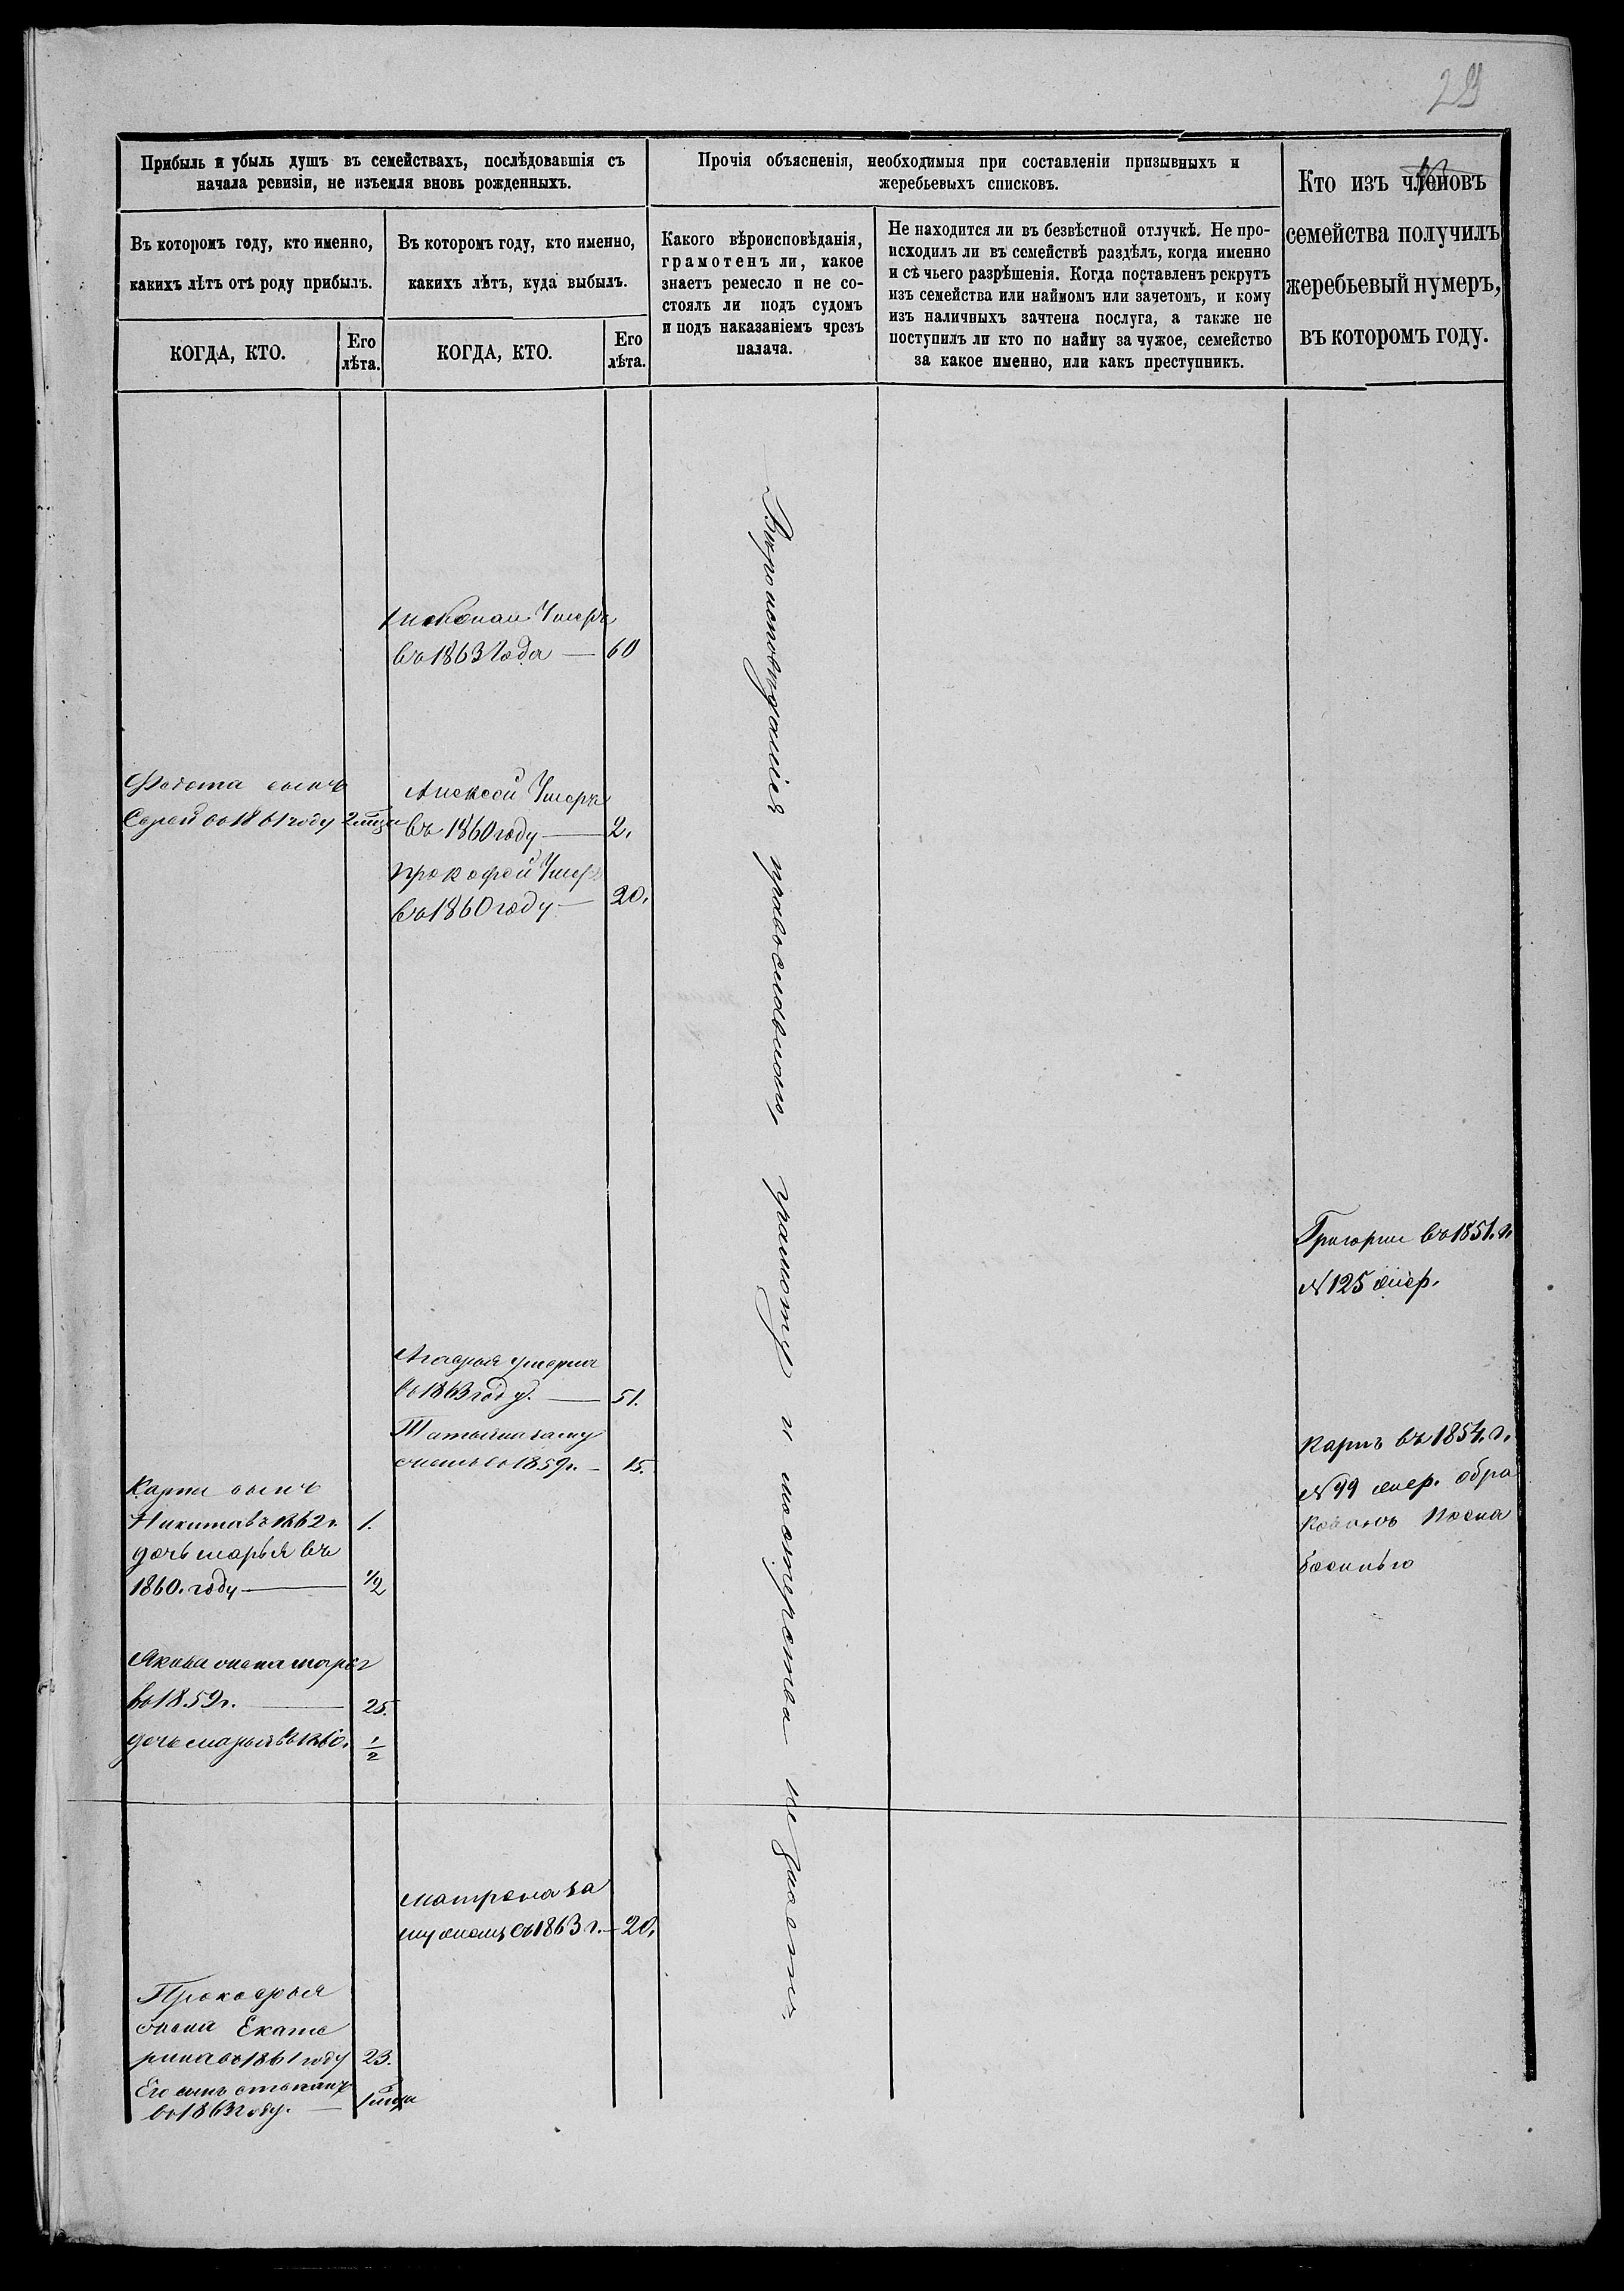 29
Прибыль и убыль душъ въ семействахъ, послѣдовавшія съ
начала ревизіи, не изъемля вновь рожденныхъ.
Прочія объясненія, необходимыя при составленіи призывныхъ и
жеребьевыхъ списковъ.
Кто изъ членовъ
семейства получилъ
жеребьевый нумеръ,
въ которомъ году.
Въ которомъ году, кто именно,
какихъ лѣтъ отъ роду прибылъ.
Въ которомъ году, кто именно,
какихъ лѣтъ, куда выбылъ.
Какого вѣроисповѣданія,
грамотенъ ли, какое
знаетъ ремесло и не со-
стоялъ ли подъ судомъ
и подъ наказаніемъ чрезъ
палача.
Не находится ли въ безвѣстной отлучкѣ. Не про-
исходилъ ли въ семействѣ раздѣлъ, когда именно
и съ чьего разрѣшенія. Когда поставленъ рекрутъ
изъ семейства или наймомъ или зачетомъ, и кому
изъ наличныхъ зачтена послуга, а также не
поступилъ ли кто по найму за чужое, семейство
за какое именно, или какъ преступникъ.
КОГДА, КТО.
Его
лѣта.
КОГДА, КТО.
Его
лѣта.
Умеръ
въ 1863 Года — 60
Федота сынъ
Сергей въ 1861 году
Алексей Умеръ
въ 1860 году — 2.
Прокофей Умеръ
въ 1860 году — 20.
Вѣроисповѣданія православнаго, грамоту и мастерства не знаетъ
Григорий въ 1851. г.
N 125 жер.
Агафья умерла
въ 1863 году. — 51.
Татьяна заму
жемъ въ 1859 г. — 15.
Карпъ въ 1854. г.
N 99 жер. обра
кованъ
Карпа сынъ
Никита въ 1862 г. 1.
дочь Марья въ
1860. году — 1/2
Якова жена Марья
въ 1859 г. — 25.
дочь Марья въ 1860. 1/2
Матрена за
мужемъ въ 1863 г. — 20.
Прокофья
жена Екате
рина въ 1861 году 23.
Его сынъ Степанъ
въ 1863 году. —